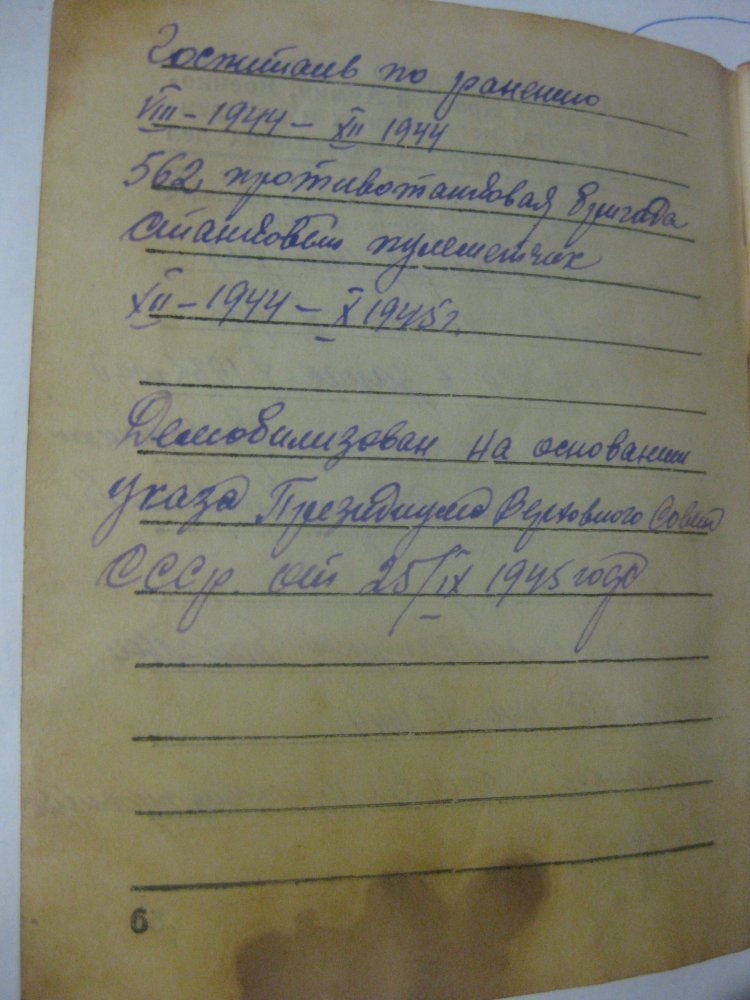 Госпиталь по ранению
VIII – 1944 – XII 1944
562 противотанковая бригада
станковый пулеметчик
XII – 1944 – X 1945 г.
Демобилизован на основании
указа Президиума Верховного Совета
СССР. от 25/IX 1945 года
6